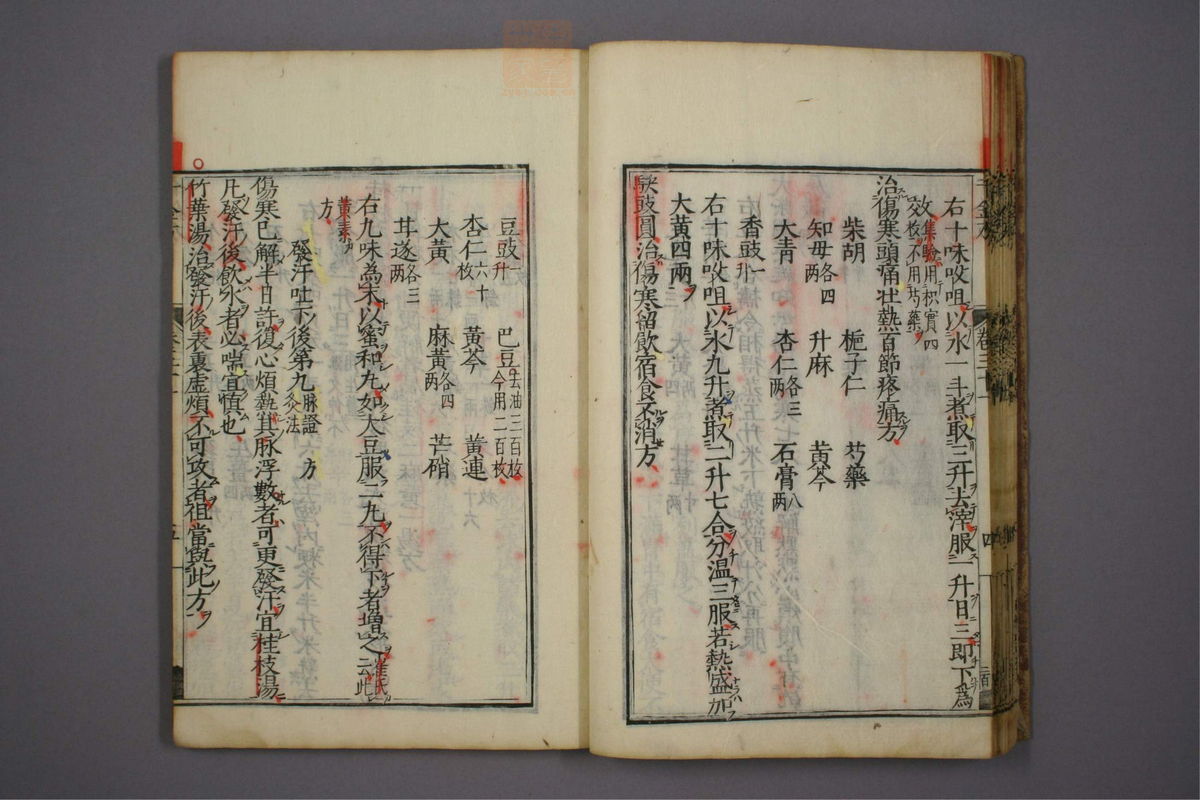 右十味㕮咀以水一斗煮取三升去滓服一升日三即下為
效集驗用枳實四枚不用芍藥
治傷寒頭痛壯熱百節疼痛方
柴胡　梔子仁　芍藥
知母各四两　升麻　黃芩
大青　杏仁各三两　石膏八两
香豉一升
右十味㕮咀以水九升煮取二升七合分温三服若熱盛加
大黃四兩
駃豉圓治傷寒留飲宿食不消方
豆豉一升　巴豆去油三百枚今用二百枚
杏仁六十枚　黃芩　黃連
大黃　麻黃各四两　芒硝
甘遂各三两
右九味為末以蜜和丸如大豆服二丸不得下者增之崔氏云此
黃素方
發汗吐下後第九脉證灸法　方
傷寒已解半日許復心煩熱其脉浮數者可更發汗宜桂枝湯
凡發汗後飲水者必喘宜慎也
竹葉湯治發汗後表裏虛煩不可攻者祖當與此方